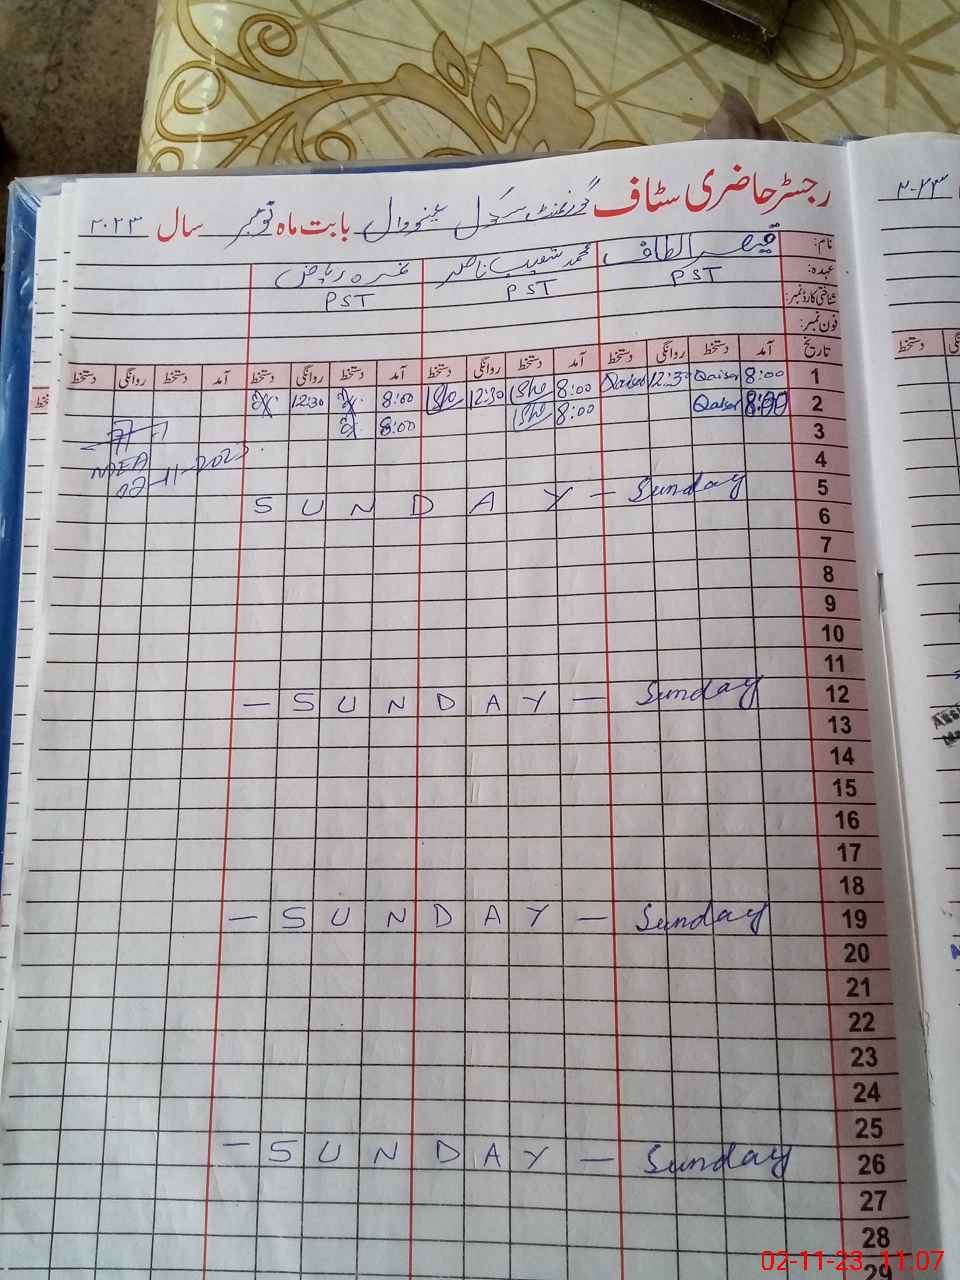 رجسٹر حاضری سٹاف گورنمنٹ سکول بابت ماہ نومبر سال ۲۰۲۳
۲۰۲۳
نام: قیصر الطاف محمد شعیب ناصر
عہدہ: PST PST PST
شناختی کارڈ نمبر:
فون نمبر:
تاریخ آمد دستخط روانگی دستخط آمد دستخط روانگی دستخط آمد دستخط روانگی دستخط آمد دستخط روانگی دستخط
1 8:00 Qaiser 12:30 Qaiser 8:00 She 12:30 She 8:00 12:30
2 8:00 Qaiser 8:00 She 8:00
3
4
5 SUNDAY – Sunday
6
7
8
9
10
11
12 – SUNDAY – Sunday
13
14
15
16
17
18
19 – SUNDAY – Sunday
20
21
22
23
24
25
26 – SUNDAY – Sunday
27
28
29
02-11-2023
02-11-23 11:07